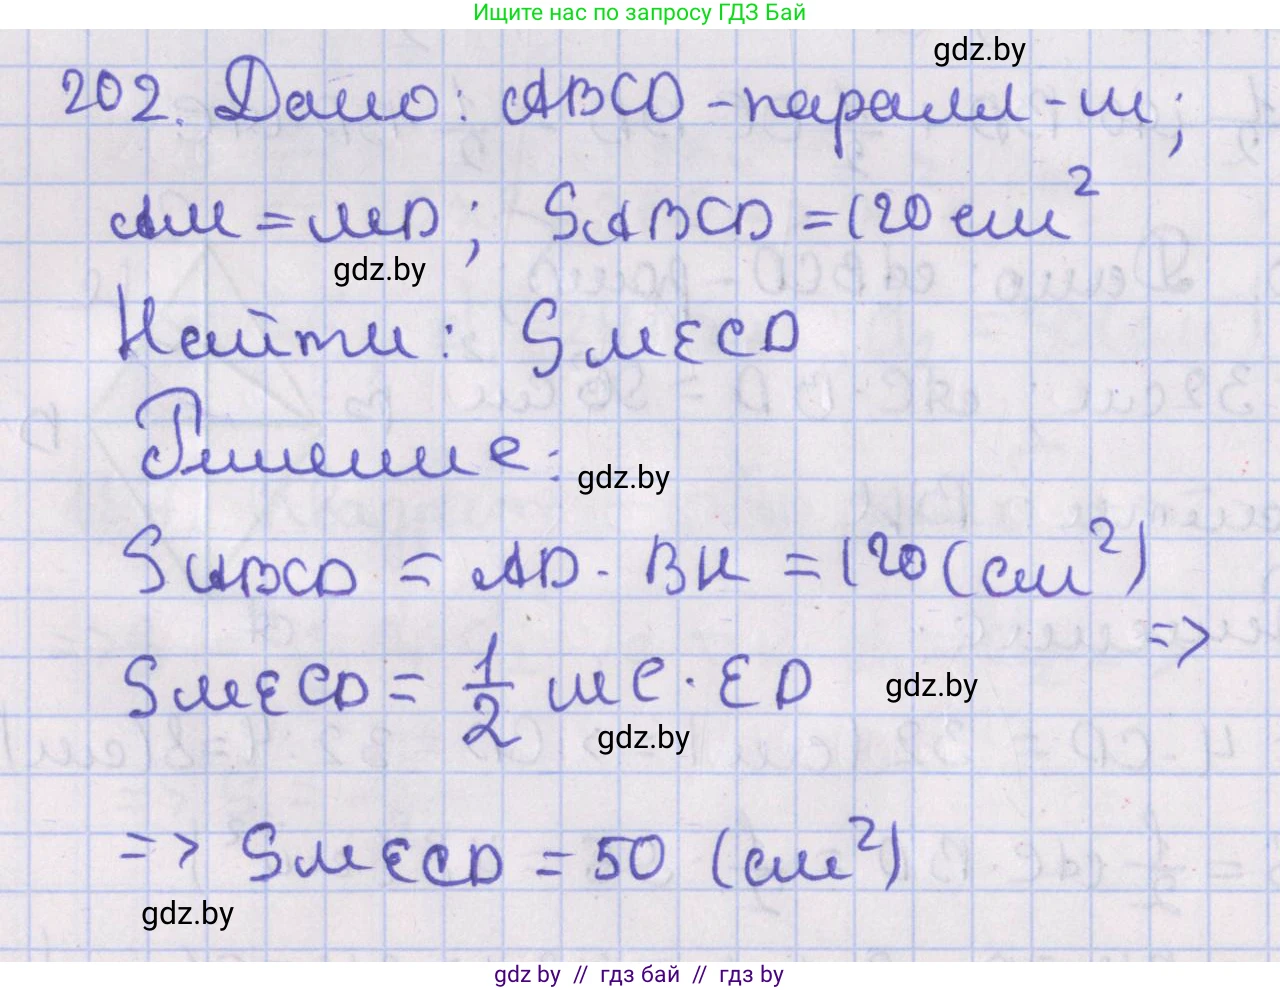 Ищите нас по запросу ГДЗ Бай
gdz.by
202. Дано: ABCD - паралл-м;
AM = MD; SABCD = 120 см²
gdz.by
Найти: SMECD
Решение:
gdz.by
SABCD = AD · BK = 120 (см²)
=>
SMECD = 1/2 MC · ED
gdz.by
gdz.by
=> SMECD = 50 (см²)
gdz.by
gdz by // гдз бай // гдз by